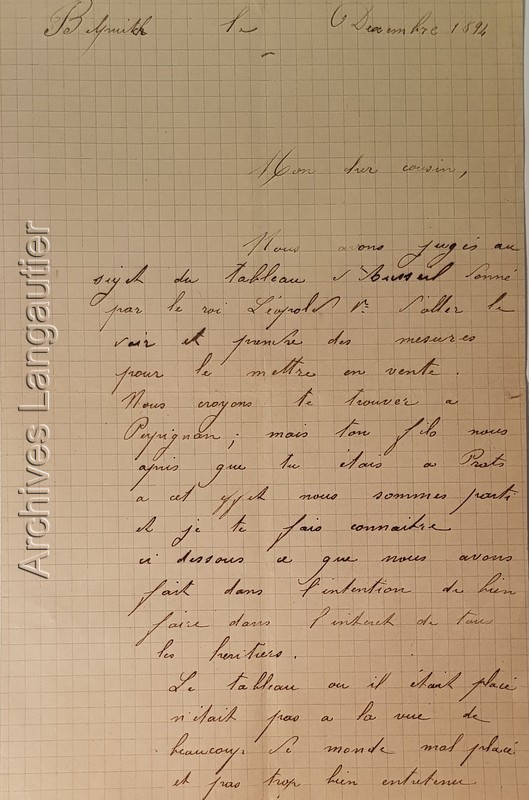 Belpuitch le 6 Decembre 1894
Mon cher cousin,
Nous avons jugés au
sujet du tableau d'Arnaud donné
par le roi Léopold 1er d'aller le
voir et prendre des mesures
pour le mettre en vente.
Nous croyons te trouver a
Perpignan; mais ton fils nous
apris que tu étais a Prats
a cet effet nous sommes parti
et je te fais connaitre
ci dessous ce que nous avons
fait dans l'intention de bien
faire dans l'interet de tous
les heritiers.
Le tableau ou il était placé
n'était pas a la vue de
beaucoup de monde mal placé
et pas trop bien entretenu
Archives Langautier